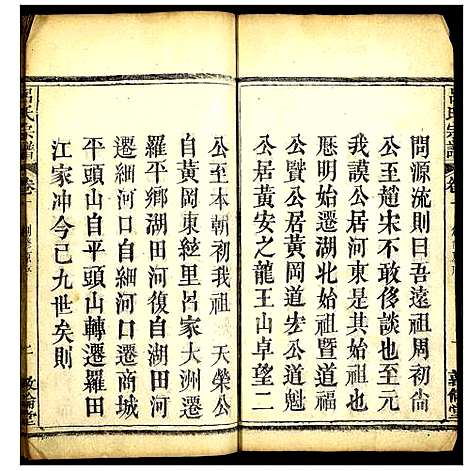 問源流則曰吾遠祖周初尙
公至趙宋不敢侈談也至元
我謨公居河東是爲其始也
厯明初遷湖北始祖曁道福
公賢公居黃岡道宏公道魁
公居黃安之龍王山卓望二
公至本朝初我祖 天榮公
自黃岡東絃里呂家大洲遷
羅平鄉湖田河復自湖田河
遷細河口自細河口遷商城
平頭山自平頭山轉遷羅田
江家冲今已九世矣則
呂氏宗譜
卷一
二
敦倫堂